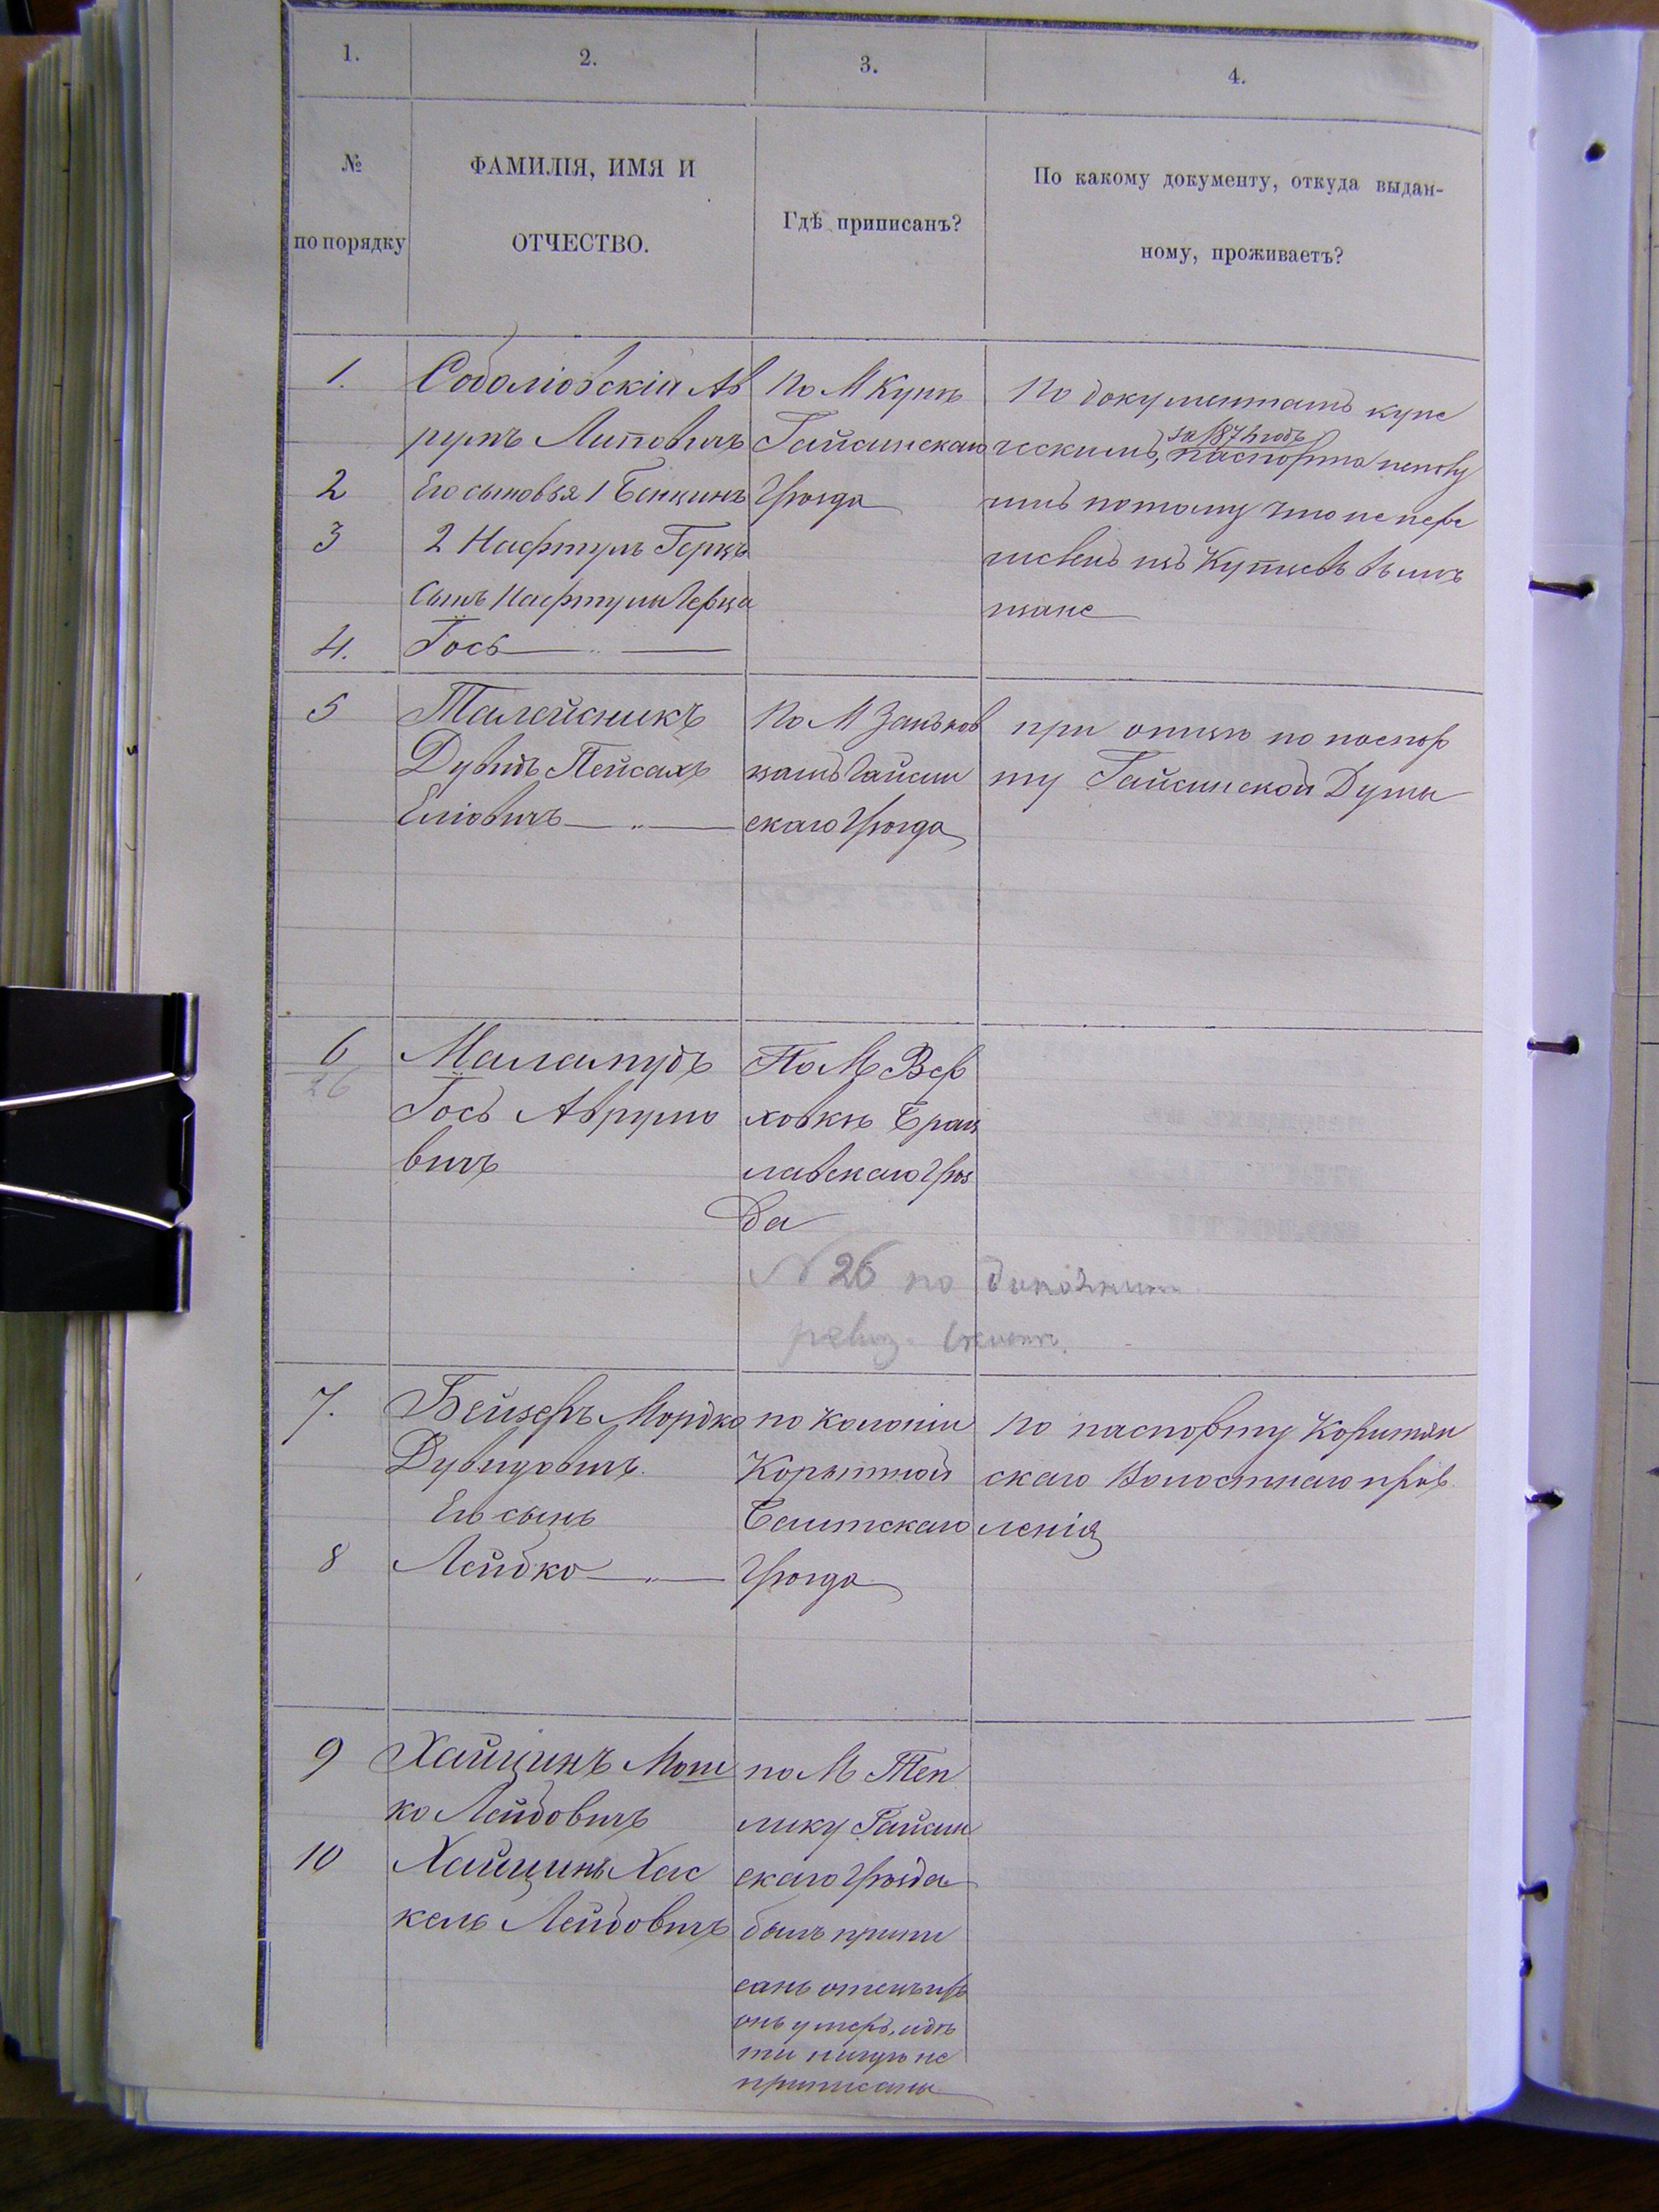 1.
2.
3.
4.
№
по порядку
ФАМИЛІЯ, ИМЯ И
ОТЧЕСТВО.
Гдѣ приписанъ?
По какому документу, откуда выдан-
ному, проживаетъ?
1.
Соболіовскій Ав
румъ Липовичъ
2
Его сыновья 1 Бенцинъ
3
2 Нафтулъ Герцъ
Сынъ Нафтулы Герца
4.
Іось
По М Купн
Гайсинскаго
Уѣзда
По документамъ купе
ческимъ, за 187 годъ
паспорта неполу
чилъ потому что не пере
численъ изъ Купцовъ въ мѣ
щане
5
Талейсникъ
Дувидъ Пейсахъ
Еліовичъ
По М Заньков
цамъ Гайсин
скаго Уѣзда
при отцѣ по поспор
ту Гайсинской Думы
6
26
Маламудъ
Іось Аврумо
вичъ
По М Вер
ховкѣ Брац
лавскаго Уѣз
да
№ 26 по
ревиз.
7.
Бейзеръ Мордко
Дувидовичъ
Его сынъ
8
Лейбко
по Колоніи
Корытной
Балтскаго
Уѣзда
По паспорту Корытян
скаго Волостнаго прав
ленія
9
Хайцинъ Мош
ко Лейбовичъ
10
Хайцинъ Хас
кель Лейбовичъ
по М Теп
лику Гайсин
скаго Уѣзда
былъ припи
санъ отецъ
онъ умеръ, и дѣ
ти нигдѣ не
приписаны